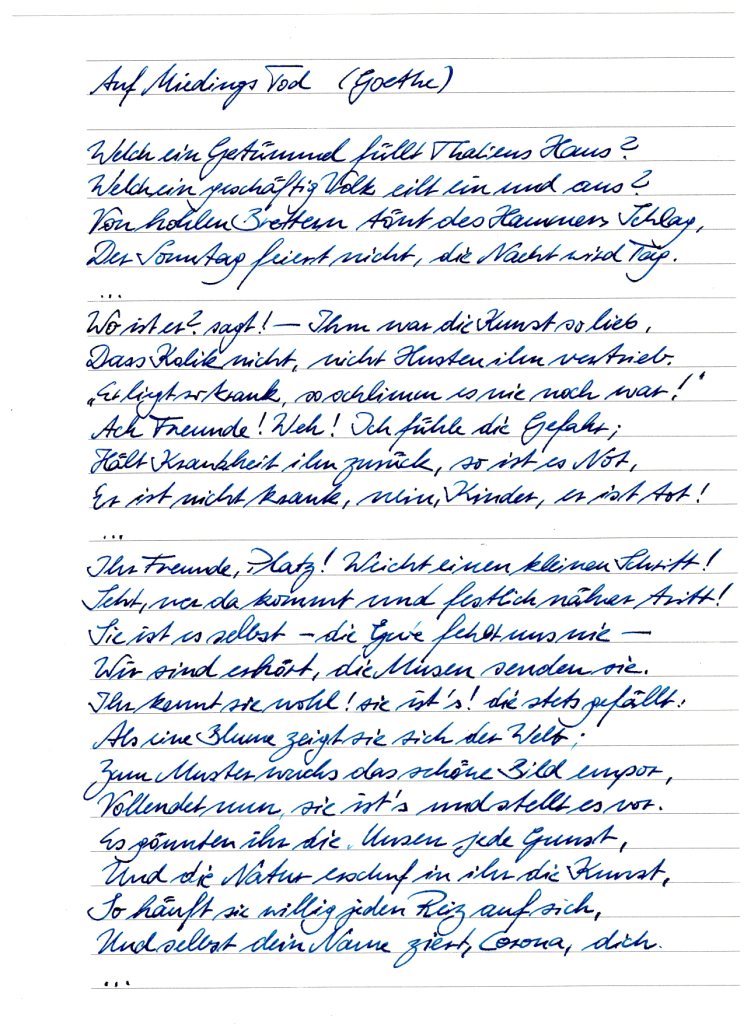 Auf Miedings Tod (Goethe)
Welch ein Getümmel füllt Thaliens Haus?
Welch ein geschäftig Volk eilt ein und aus?
Von hohlen Brettern tönt des Hammers Schlag,
Der Sonntag feiert nicht, die Nacht wird Tag.
...
Wo ist er? sagt! – Ihm war die Kunst so lieb,
Dass Kolik nicht, nicht Husten ihn vertrieb.
„Er liegt so krank, so schlimm es nie noch war!"
Ach Freunde! Weh! Ich fühle die Gefahr;
Hält Krankheit ihn zurück, so ist es Not,
Er ist nicht krank, nein, Kinder, er ist tot!
...
Ihr Freunde, Platz! Weicht einen kleinen Schritt!
Seht, wer da kommt und festlich näher tritt!
Sie ist es selbst – die Gute fehlt uns nie –
Wir sind erhört, die Musen senden sie.
Ihr kennt sie wohl! sie ist's! die stets gefällt:
Als eine Blume zeigt sie sich der Welt;
Zum Muster wuchs das schöne Bild empor,
Vollendet nun, sie ist's und stellt es vor.
Es gönnten ihr die Musen jede Gunst,
Und die Natur erschuf in ihr die Kunst,
So häuft sie willig jeden Reiz auf sich,
Und selbst dein Name ziert, Corona, dich.
...